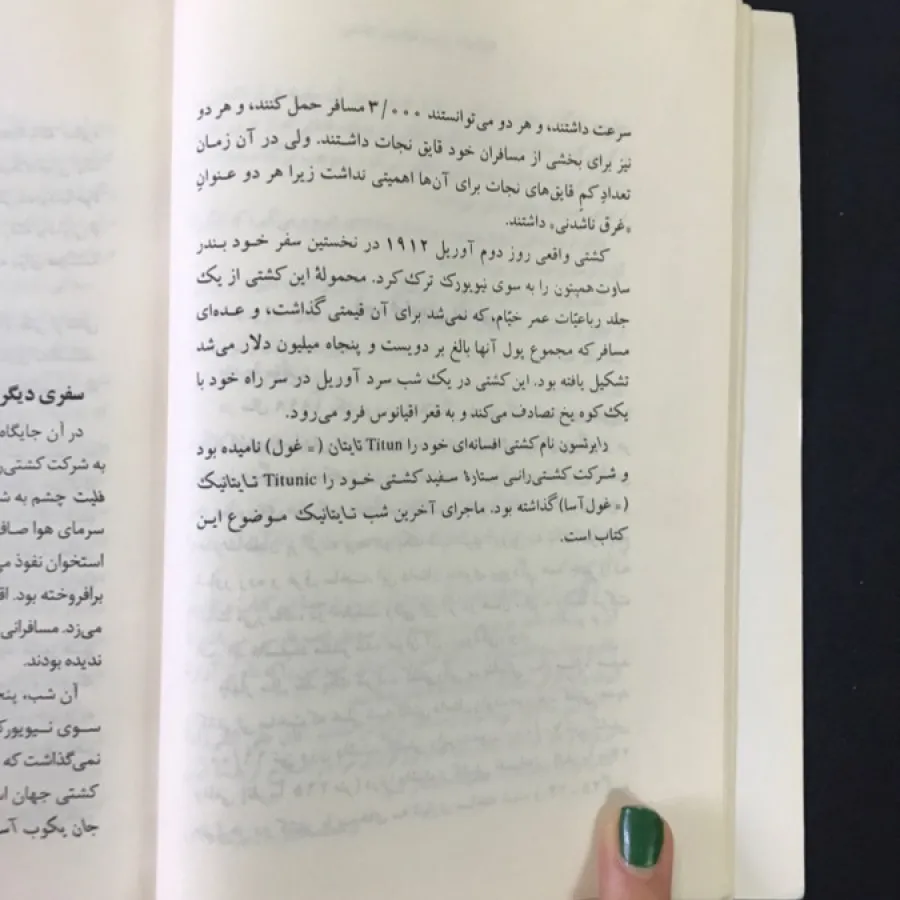 سرعت داشتند، و هر دو می‌توانستند ۳/۰۰۰ مسافر حمل کنند، و هر دو
نیز برای بخشی از مسافران خود قایق نجات داشتند. ولی در آن زمان
تعدادِ کمِ قایق‌های نجات برای آن‌ها اهمیتی نداشت زیرا هر دو عنوانِ
«غرق ناشدنی» داشتند.
کشتی واقعی روز دوم آوریل ۱۹۱۲ در نخستین سفر خود بندر
ساوت‌همپتون را به سوی نیویورک ترک کرد. محمولهٔ این کشتی از یک
جلد رباعیّات عمر خیّام، که نمی‌شد برای آن قیمتی گذاشت، و عده‌ای
مسافر که مجموع پول آنها بالغ بر دویست و پنجاه میلیون دلار می‌شد
تشکیل یافته بود. این کشتی در یک شب سرد آوریل در سر راه خود با
یک کوه یخ تصادف می‌کند و به قعر اقیانوس فرو می‌رود.
رابرتسون نام کشتی افسانه‌ای خود را Titun تایتان (= غول) نامیده بود
و شرکت کشتی‌رانی ستارهٔ سفید کشتی خود را Titunic تایتانیک
(= غول‌آسا) گذاشته بود. ماجرای آخرین شب تایتانیک موضوع این
کتاب است.
سفری دیگر
در آن جایگاه
به شرکت کشتی‌ر
فلیت چشم به ش
سرمای هوا صاف
استخوان نفوذ می
برافروخته بود. اق
می‌زد. مسافرانی
ندیده بودند.
آن شب، پنج
سوی نیویورک
نمی‌گذاشت که
کشتی جهان ا
جان یکوب آس